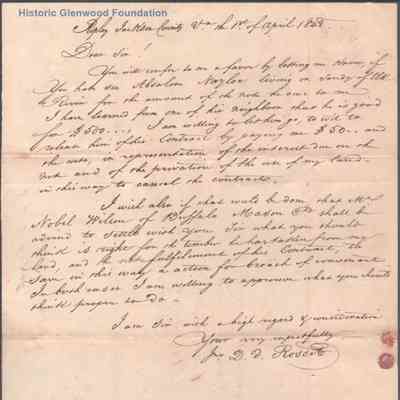 Historic Glenwood Foundation
Ripley Jackson County Va th 1st of April 18
Dear Sir!
You will confer to me a favor by letting me know, if
You have seen Absalom Naylor living on Sandy
River for the amount of the note he owe to me.
I have learned from one of his neighbors that he is good
for $500.., I am willing to let him go, to wit to
release him of his Contract by paying me $50.. and
the costs, in representation of the interest due on the
note and of the privation of the use of my land.
in this way to cancel the contract.
I wish also if that suits be done, that Mr
Nobil Wilson of Buffalo Mason Cty shall be
advised to settle with you Sir what you should
think is right for the timber he has taken from my
land, and the non fulfillment of his Contract, to
save in this way a action for breach of covenant
In both cases I am willing to approve what you should
think proper to do.
I am Sir with a high regard & consideration
Your very respectfully
D. D. Roscoe